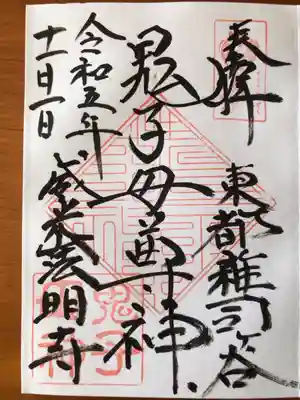 奉拝
東都雑司ヶ谷
鬼子母尊神
令和五年
十一月一日
威光山法明寺
鬼子
母神